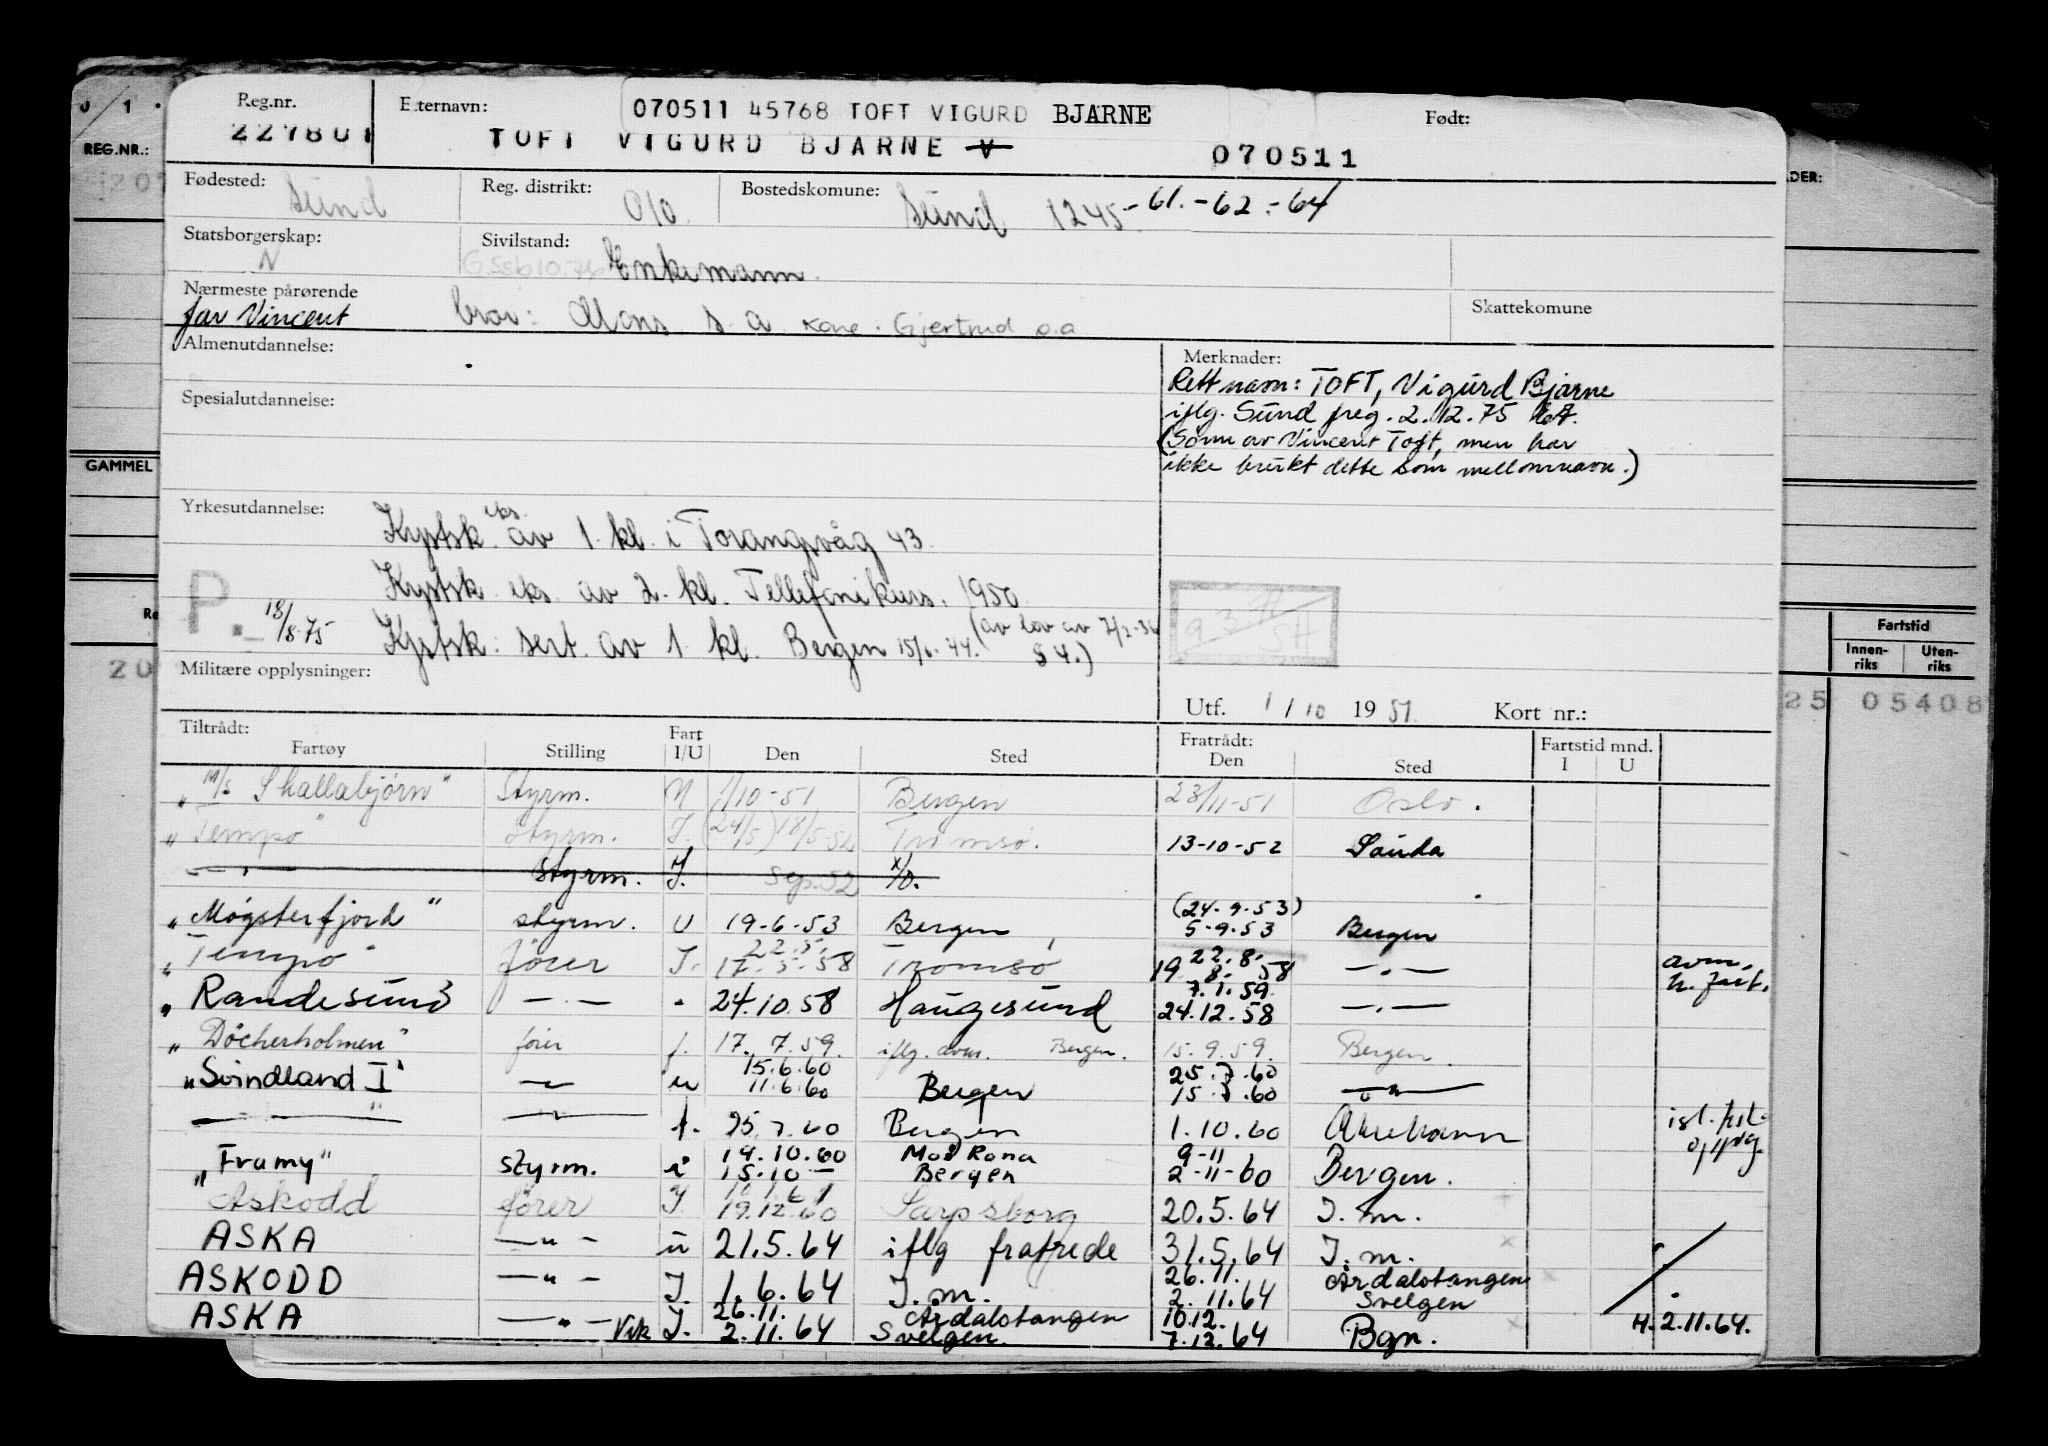 Reg.nr. Etternavn: 070511 45768 TOFT VIGURD BJARNE Født:
227801 TOFT VIGURD BJARNE V 070511
REG.NR.:
Fødested: Sund Reg. distrikt: 010 Bostedskomune: Sund 1245 - 61. - 62 - 64
Statsborgerskap: N Sivilstand: Enkemann.
Nærmeste pårørende Skattekomune
far Vincent bror: Mons s. a. Kone: Gjertrud s.a.
Almenutdannelse: Merknader:
Rett navn: TOFT, Vigurd Bjarne
Spesialutdannelse: iflg. Sund freg. 2.12.75
(Sønn av Vincent Toft, men har
GAMMEL ikke brukt dette som mellomnavn.)
Yrkesutdannelse: Kystsk. eks. av 1. kl. i Torangsvåg 43.
Kystsk. eks. av 2. kl. Tellefonikurs. 1950
P. 18/8-75 Kystsk: sert. av 1 kl. Bergen 15/6-44. (av lov av 7/2-36 § 4.)
Militære opplysninger:
Utf. 1/10 1951 Kort nr.:
Fartstid
Innen-riks Uten-riks
25 05408
Tiltrådt: Fratrådt: Fartstid mnd.
Fartøy Stilling Fart I/U Den Sted Den Sted I U
"M/s Skallabjørn" Styrm. N 1/10-51 Bergen 23/11-51 Oslo.
"Tempo" styrm. I. (24/5) 18/5-52 Tromsø. 13-10-52 Sauda
— " — styrm. I. Sep. 52
"Møgsterfjord" styrm. U 19-6-53 Bergen (24-9-53) 5-9-53 Bergen
"Tempo" fører I. 22.5. 17.5.58 Tromsø 22.8. 19.8.58 — " — avm.
"Randesund — " — " 24.10.58 Haugesund 7.1.59 24.12.58 — " — h. fart.
"Döcherholmen" fører 17.7.59. iflg. avm. Bergen. 15.9.59. Bergen
"Svindland I" — u 15.6.60 11.6.60 Bergen 25.7.60 15.7.60 — " —
— " — — 25.7.60 Bergen 1.10.60
"Framy" styrm. i 14.10.60 15.10 — Mo i Rana Bergen 9-11 2-11-60 Bergen.
Askodd fører I. 19.12.60 Sarpsborg 20.5.64 I. m.
ASKA — " — u 21.5.64 iflg frafrede 31.5.64 I. m.
ASKODD — " — I. 1.6.64 I. m. 26.11. 2.11.64 Årdalstangen Svelgen
ASKA — " — Vik I. 26.11. 2.11.64 Årdalstangen Svelgen. 10.12. 7.12.64 Bgn. H. 2.11.64.